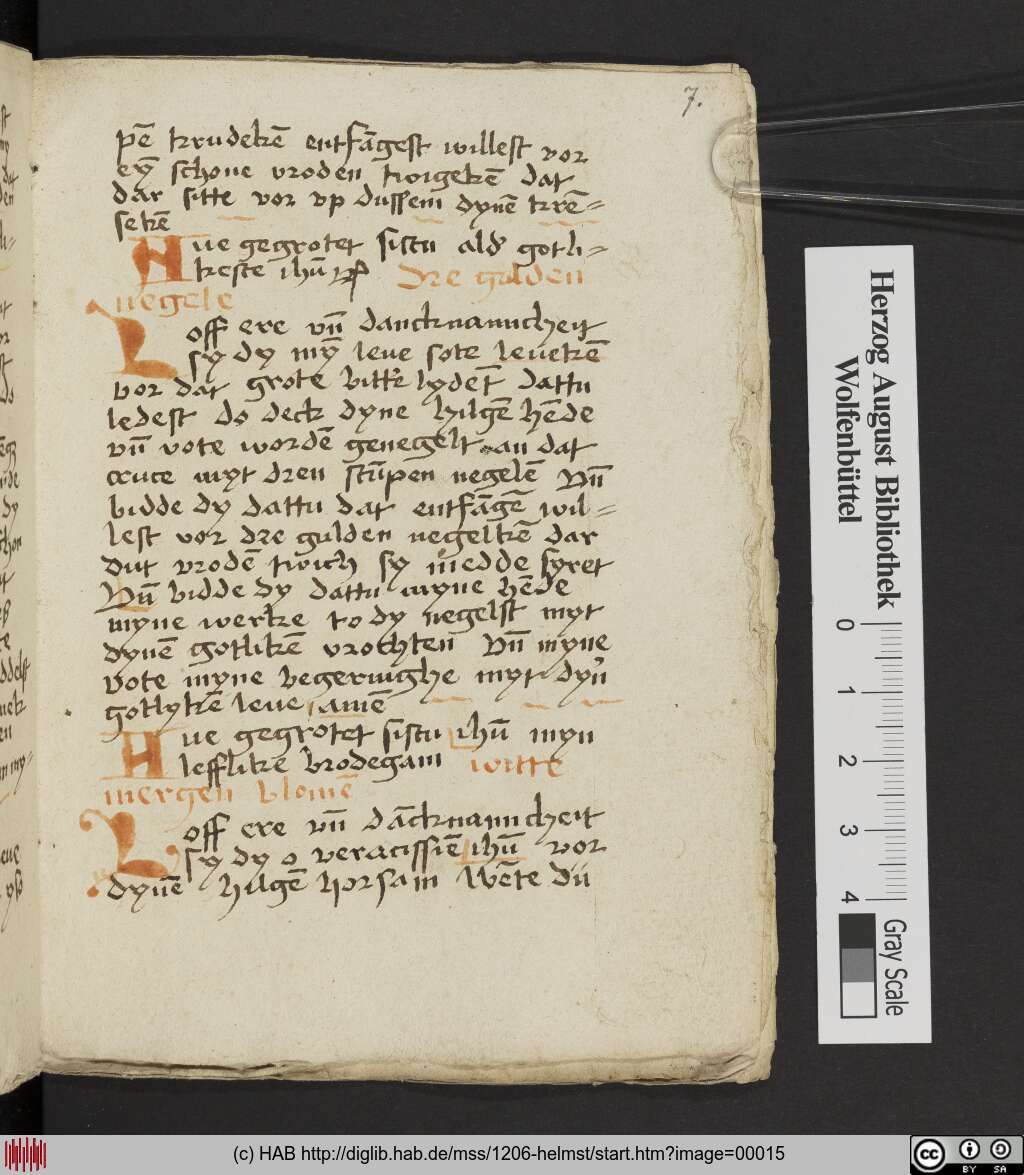 7.
pē krudekē entfāgest willest vor
eȳ schone vroden twigekē dat
dar sitte vor vp dussem dynē krē=
sekē
Aue gegrotet sistu ald' gotli=
keste ihū xp̄ Dre gulden
negele
Loff ere vn̄ dancknamicheit
sy dy mȳ leue sote leuekē
vor dat grote bitt'r lydēt dattu
ledest do deck dyne hilgē hēde
vn̄ vote wordē genegelt an dat
cruce myt dren stūpen negelē Vn̄
bidde dy dattu dat entfāgē wil=
lest vor dre gulden negelkē dar
dut vrodē twich sy mēdde syret
Vn̄ bidde dy dattu myne hēde
myne werke to dy negelst myt
dynē gotlikē vrochten Vn̄ myne
vote myne begeringhe myt dyn'
gotlykē leue amē
Aue gegrotet sistu ihū myn
lefflikē brodegam witte
mergen blomē
Loff ere vn̄ dācknamicheit
sy dy o veracissiē ihū vor
dynē hilgē horsam Wēte dū
Herzog August Bibliothek
Wolfenbüttel
0 1 2 3 4
Gray Scale
(c) HAB http://diglib.hab.de/mss/1206-helmst/start.htm?image=00015
cc BY SA